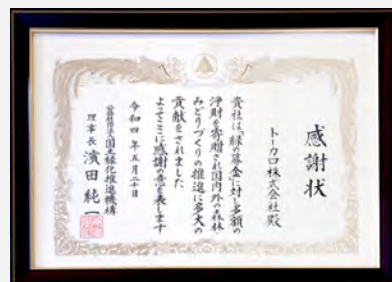 感謝状
トーカロ株式会社殿
貴社は、緑の募金に対し多額の
浄財を寄贈され国内外の森林・
みどりづくりの推進に多大の
貢献をされました
よってここに感謝の意を表します
令和四年五月二十日
公益社団法人国土緑化推進機構
理事長 濱田純一